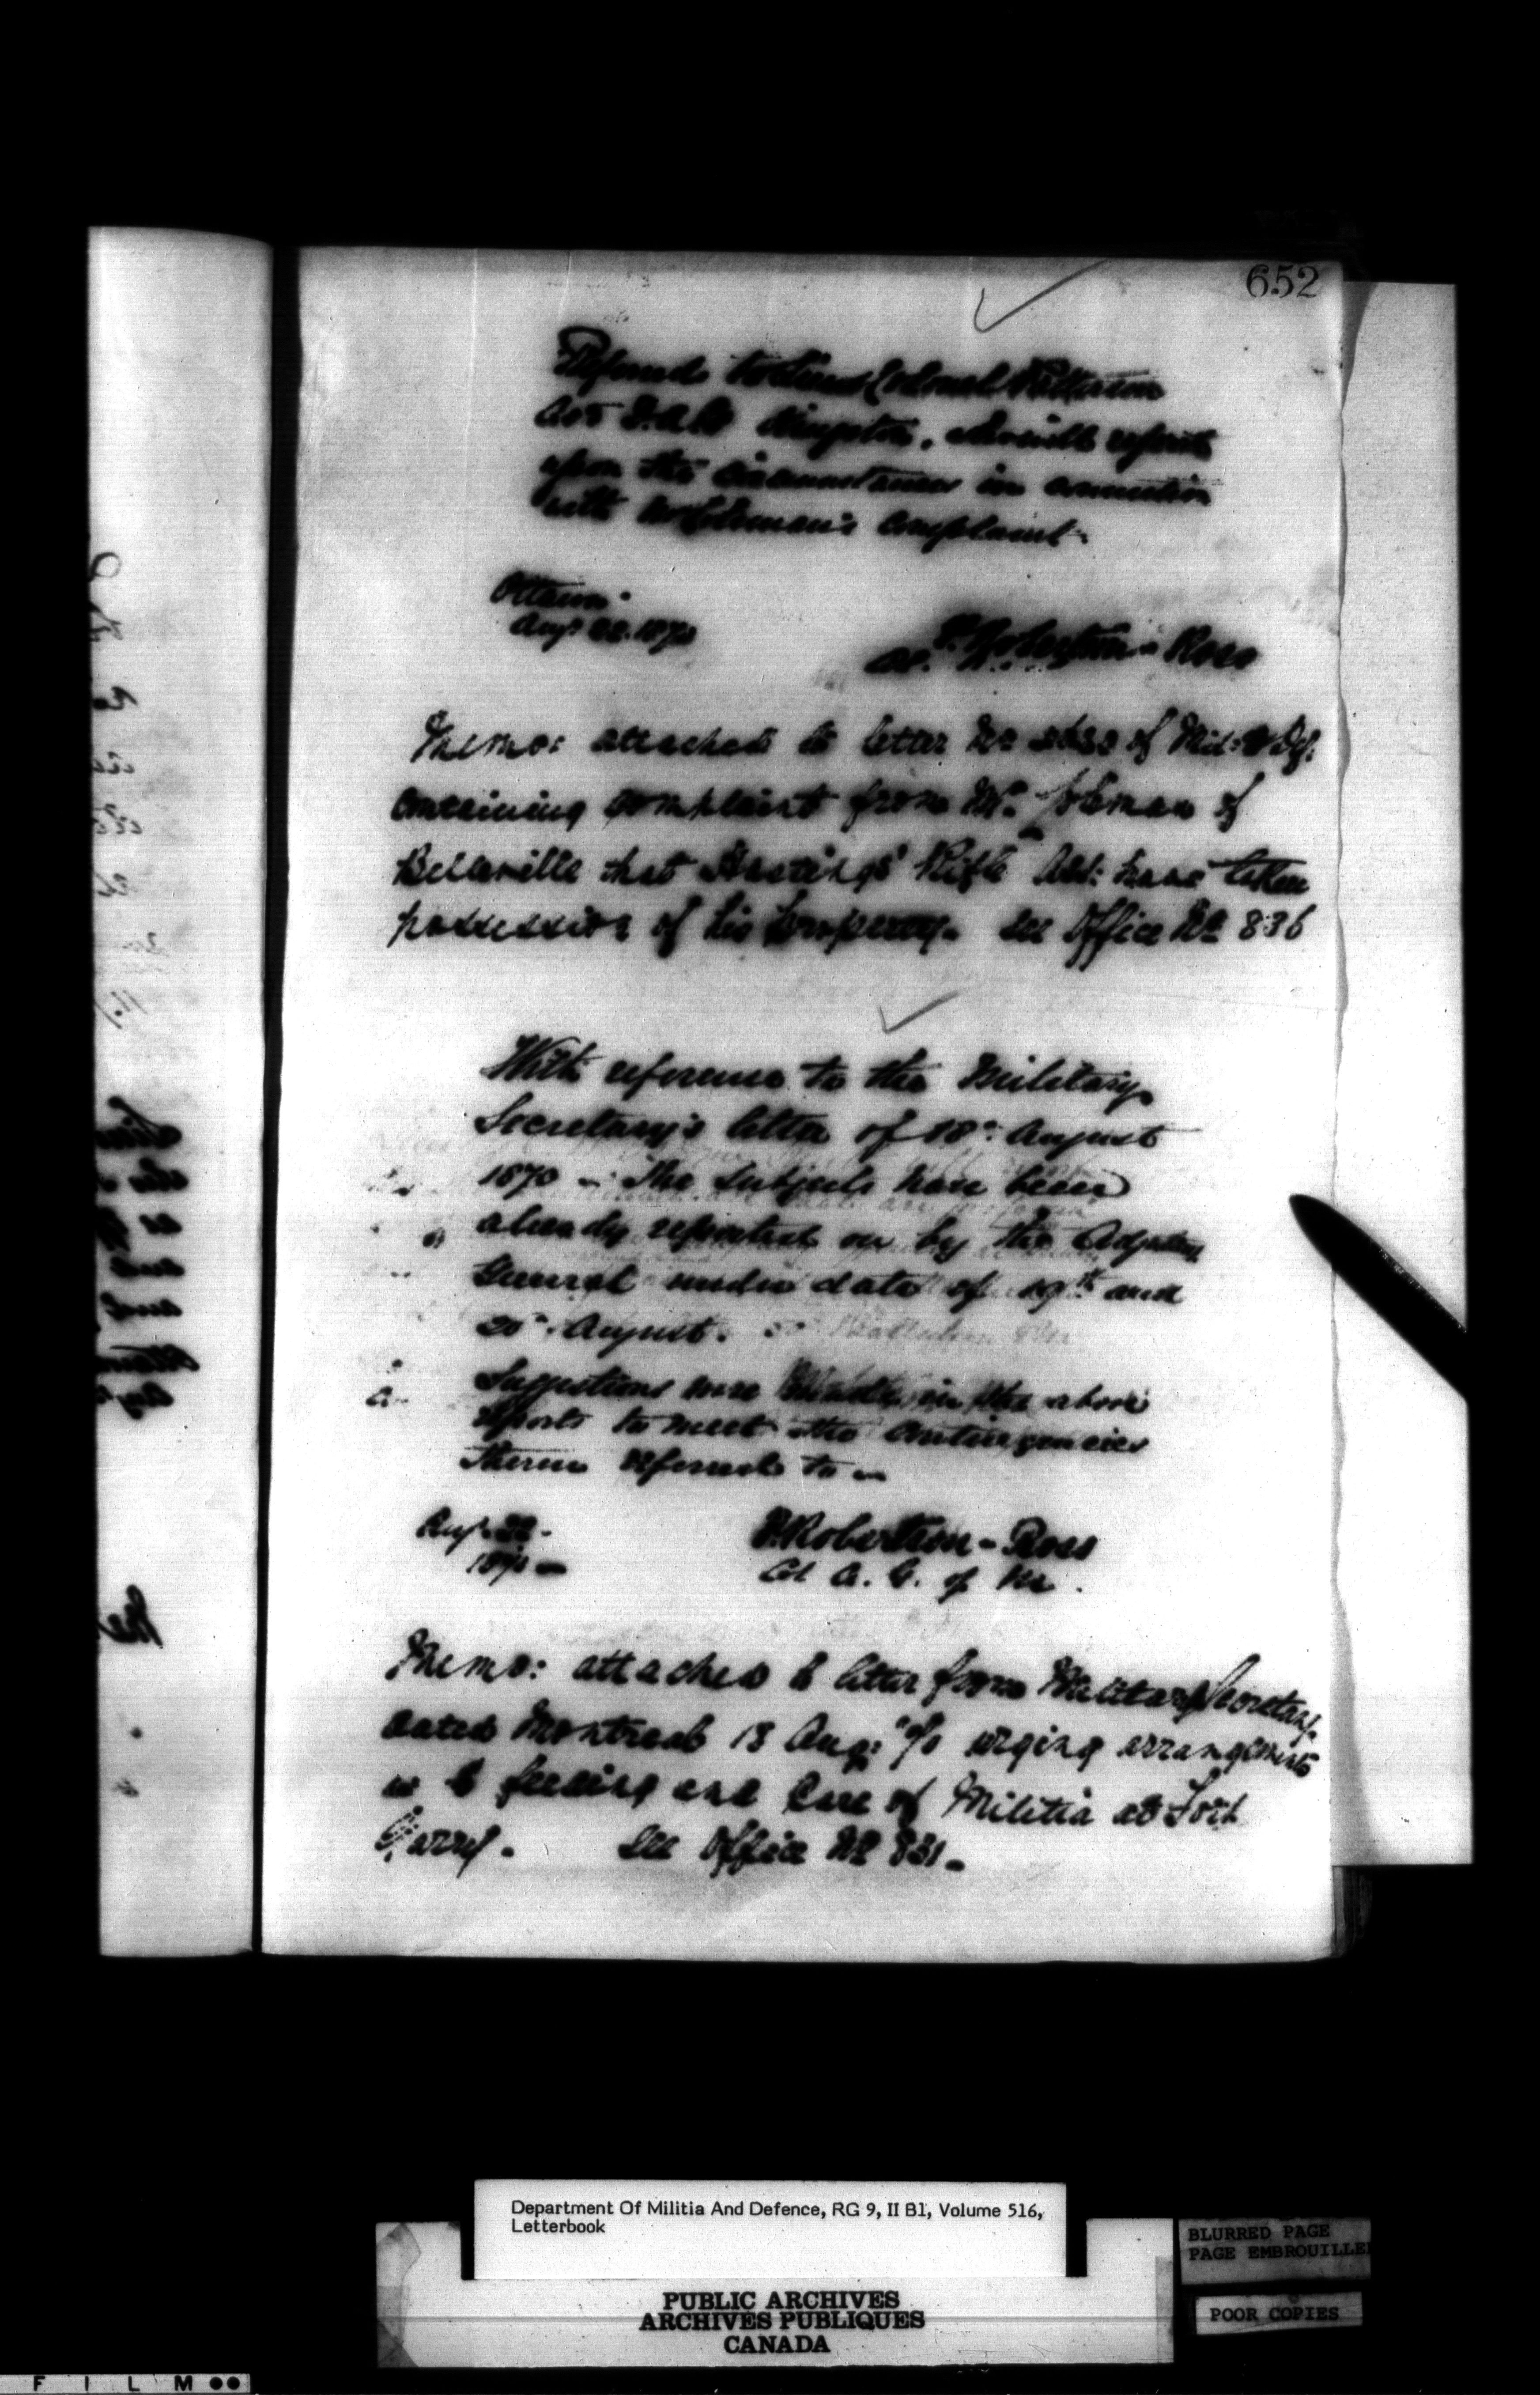 652
Referred to Lieut Colonel Patterson
Kingston, who will report
upon the circumstances in connection
with Mr Coleman's complaint.
Ottawa
Augt 22. 1870
P. Robertson-Ross
Memo: attached to letter No of Mil: & Def:
containing complaint from Mr. Coleman of
Belleville that Hastings' Rifle Assn: have taken
possession of his property. See Office No 836
With reference to the Military
Secretary's letter of 18th August
1870 - The subjects have been
already reported on by the Adjutant
General under date of 19th and
20th August.
Suggestions were in the above
reports to meet the contingencies
therein referred to -
Augt 22.
1870 -
P. Robertson-Ross
Col A. G. of Ma.
Memo: attached to letter from Military Secretary
dated Montreal 18 Aug: '70 urging arrangements
as to feeding and care of Militia at Fort
Garry. See Office No 831 -
Department Of Militia And Defence, RG 9, II B1, Volume 516,
Letterbook
BLURRED PAGE
PAGE EMBROUILLEE
POOR COPIES
PUBLIC ARCHIVES
ARCHIVES PUBLIQUES
CANADA
F I L M